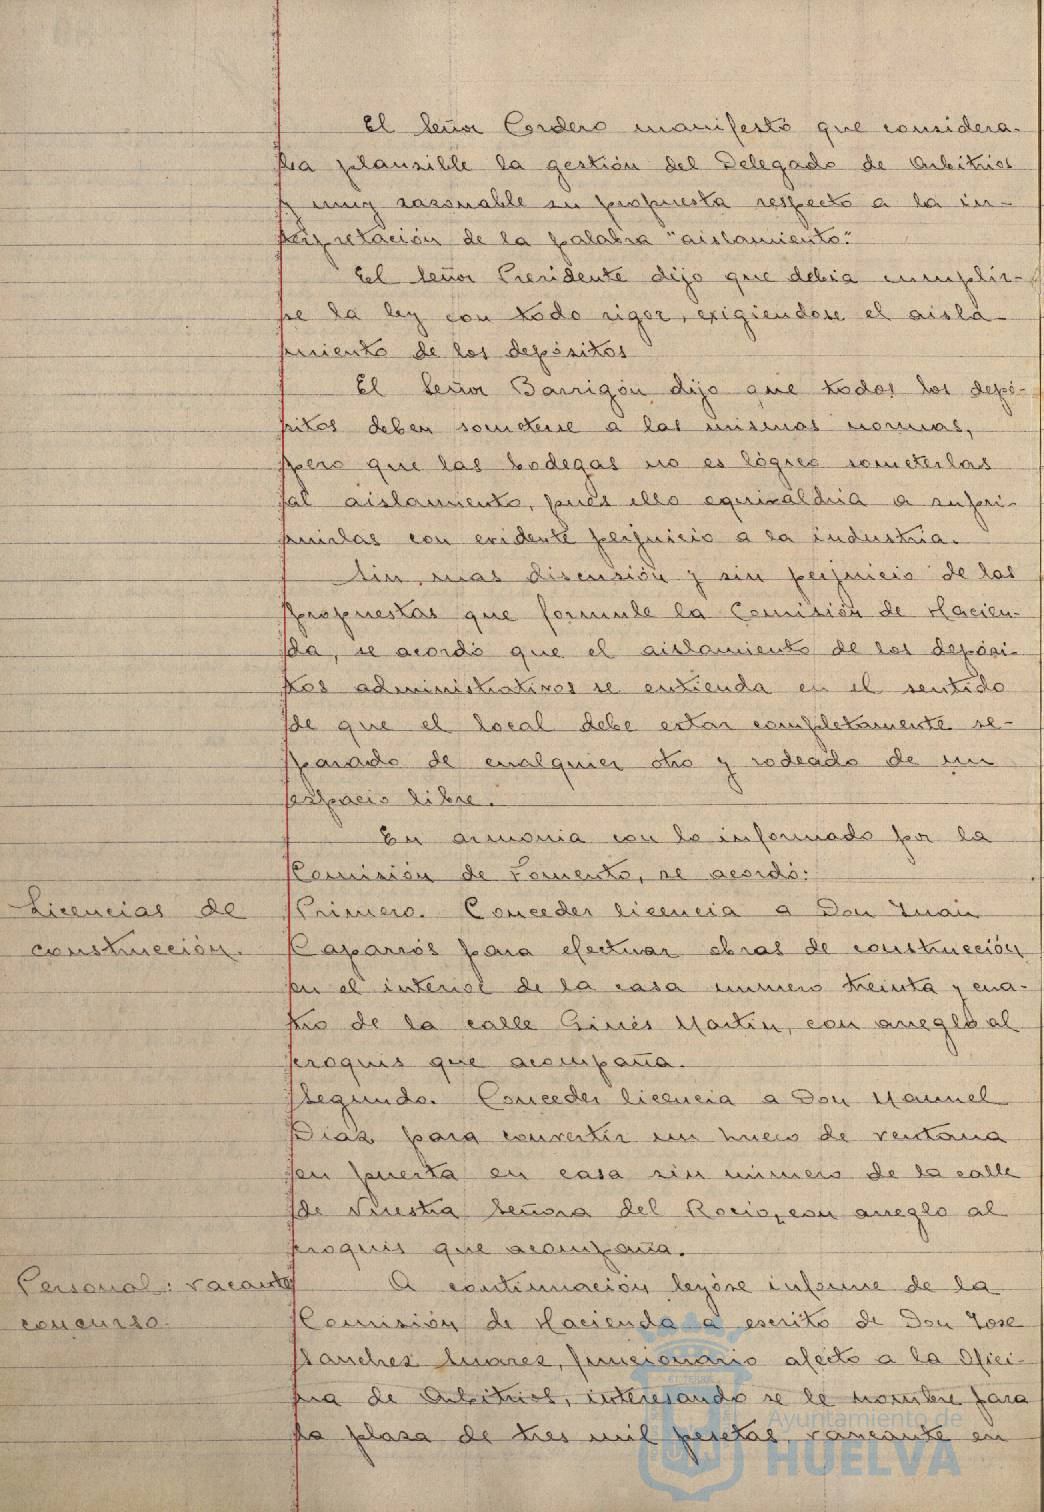 El Señor Cordero manifestó que considera-
ba plausible la gestión del Delegado de Arbitrios
y muy razonable su propuesta respecto a la in-
terpretación de la palabra "aislamiento".
El Señor Presidente dijo que debia cumplir-
se la ley con todo rigor, exigiendose el aisla-
miento de los depósitos
El Señor Barrigón dijo que todos los depó-
sitos deben someterse a las mismas normas,
pero que las bodegas no es lógico someterlas
al aislamiento, pues ello equivaldria a supri-
mirlas con evidente perjuicio a la industria.
Sin mas discusión y sin perjuicio de las
propuestas que formule la Comisión de Hacien-
da, se acordó que el aislamiento de los depósi-
tos administrativos se entienda en el sentido
de que el local debe estar completamente se-
parado de cualquier otro y rodeado de un
espacio libre.
En armonia con lo informado por la
Comisión de Fomento, se acordó:
Licencias de
construcción.
Primero. Conceder licencia a Don Juan
Caparrós para efectuar obras de construcción
en el interior de la casa numero treinta y cua-
tro de la calle Ginés Martin, con arreglo al
croquis que acompaña.
Segundo. Conceder licencia a Don Manuel
Diaz para convertir un hueco de ventana
en puerta en casa sin número de la calle
de Nuestra Señora del Rocio, con arreglo al
croquis que acompaña.
Personal: vacante
concurso.
A continuación leyóse informe de la
Comisión de Hacienda a escrito de Don Jose
Sanchez Suarez, funcionario afecto a la Ofici-
na de Arbitrios, interesando se le nombre para
la plaza de tres mil pesetas vancante en
Ayuntamiento de
HUELVA